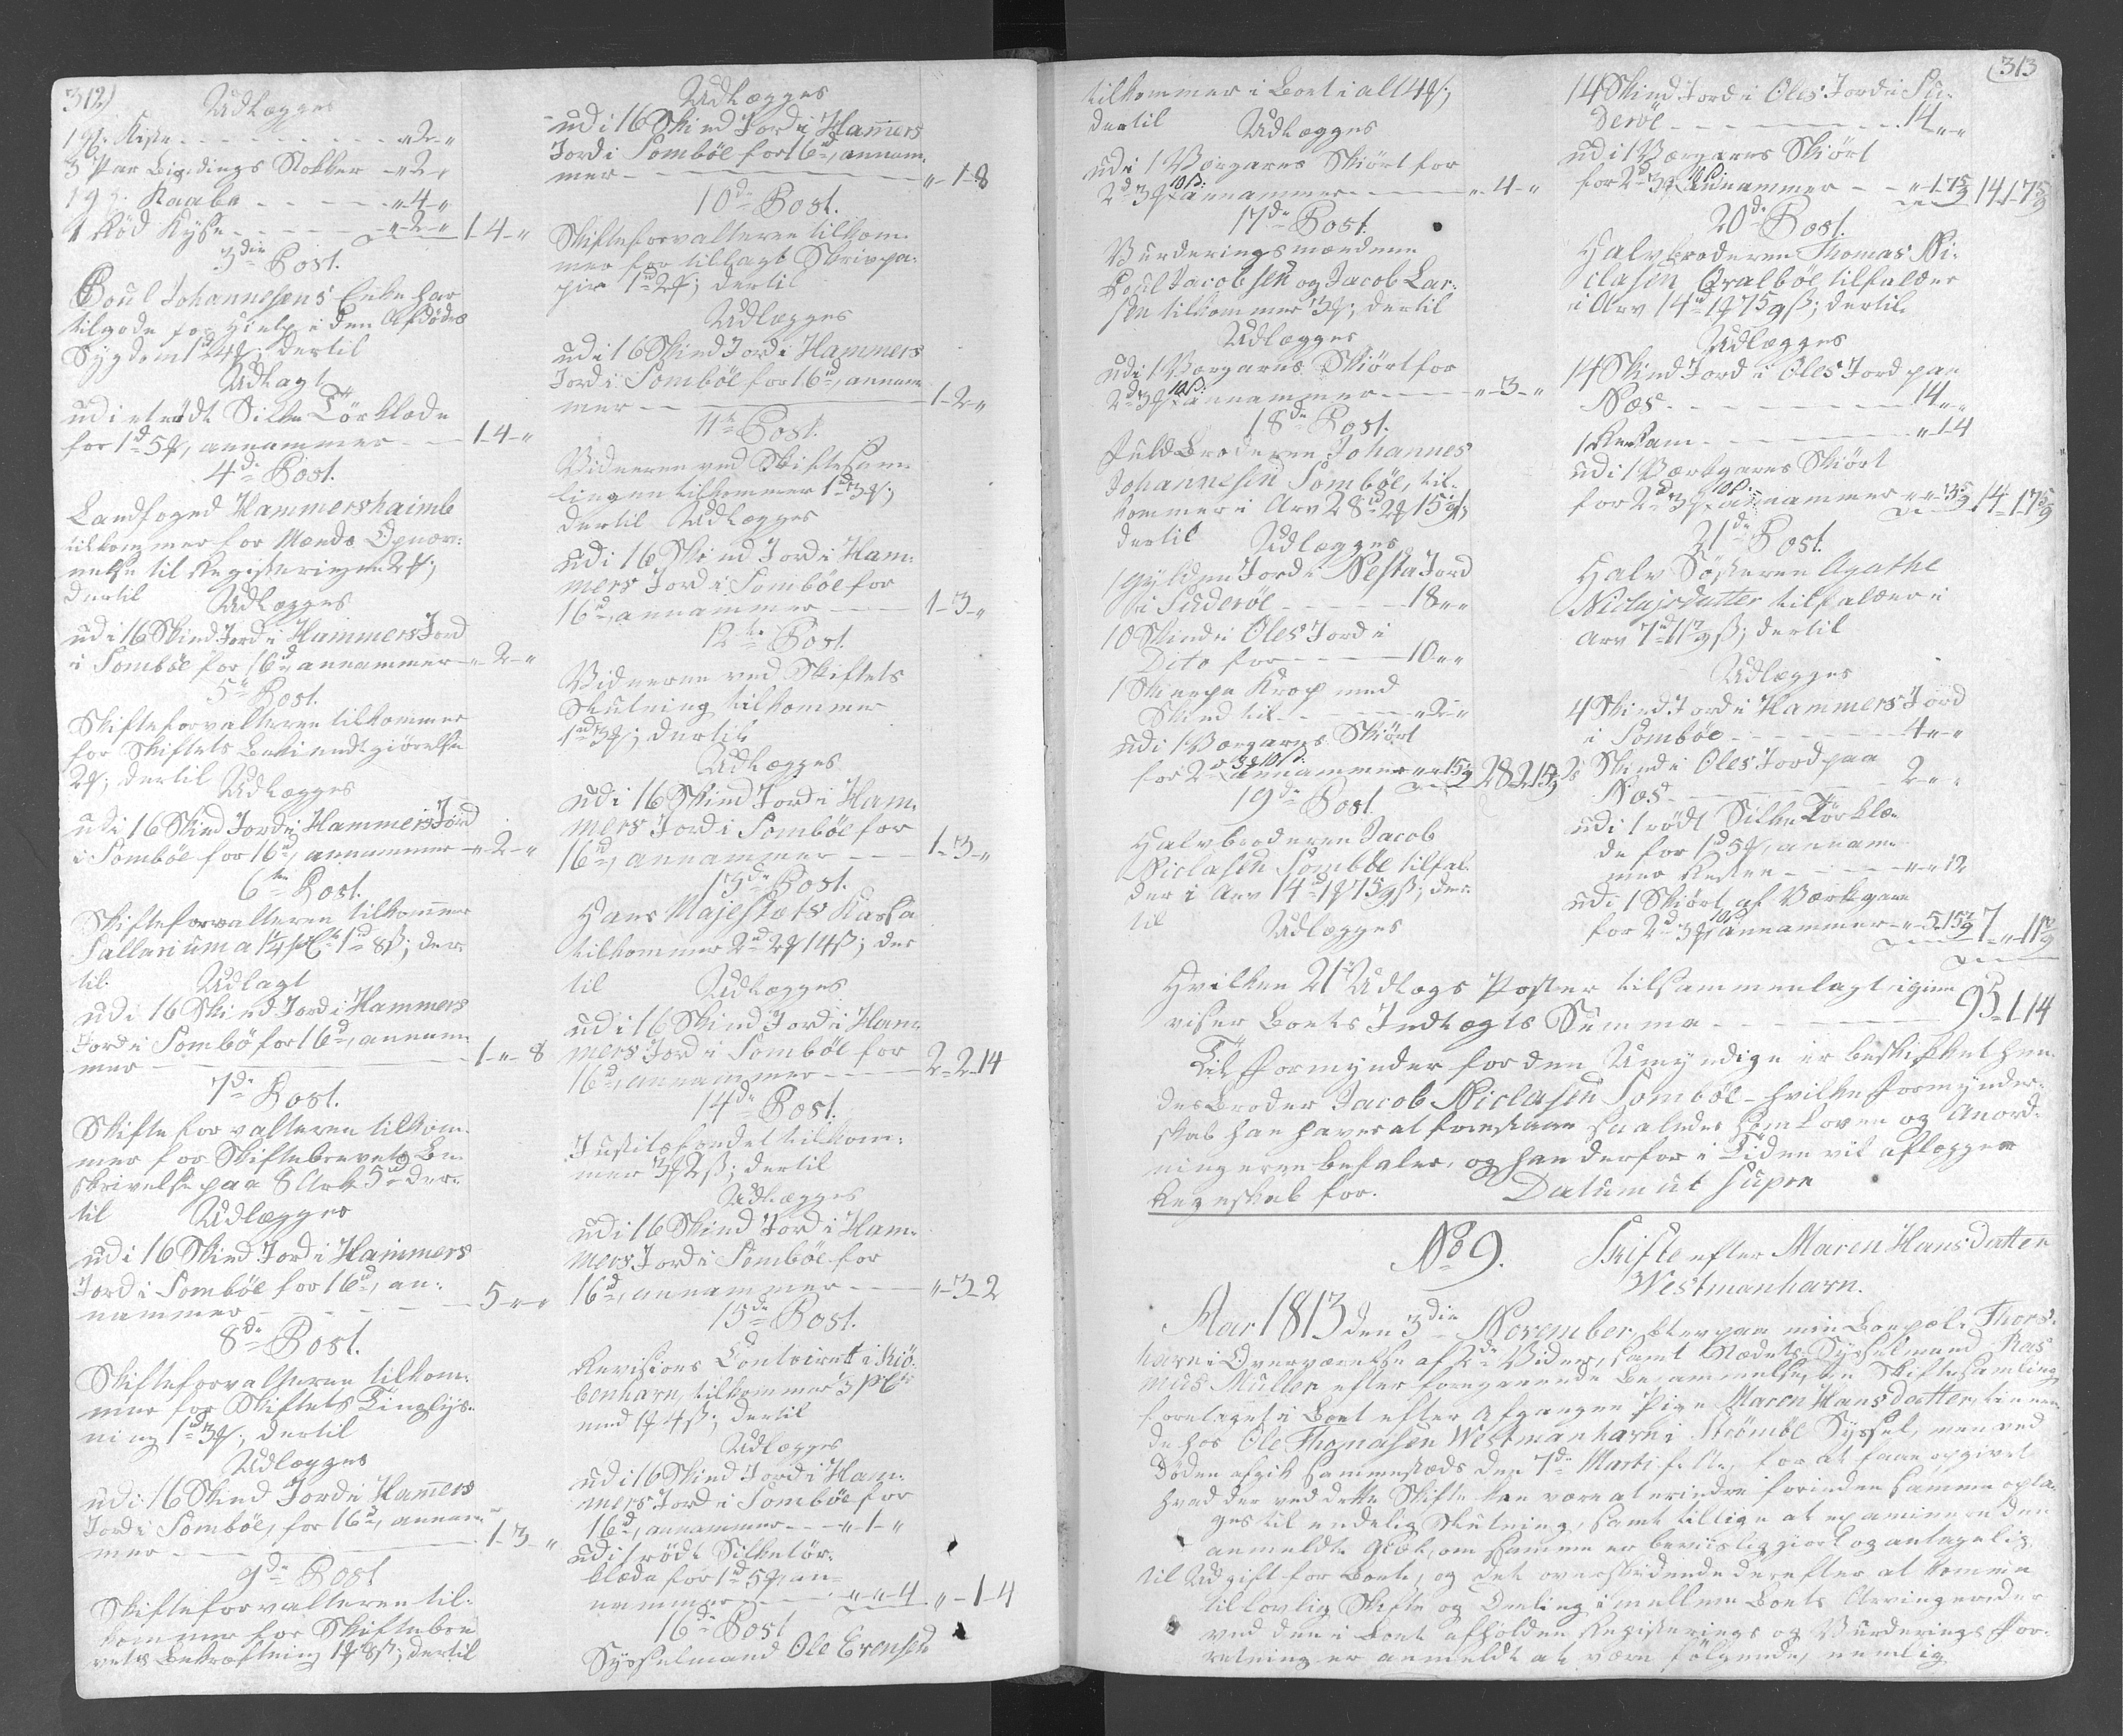 312)
Udlægges
1 gl. Kiste - - - „-2-„
3 Par Bindings Stokker - „-2-„
1 gl. Kaabe - - - „-4-„
1 Rød Kyse - - - „-2-„ 1-4-„
3die Post.
Poul Johannesens Enke har
tilgode for Hielp i den Afdødes
Sygdom 1d 4ß; dertil
Udlagt
udi et rødt Silke Törklæde
for 1d 5ß, annammer - - 1-4-„
4de Post.
Landfoged Hammershaimb
tilkommer for Mænds Opnæv-
nelse til Registeringen 2ß;
dertil Udlægges
udi 16 Skind Jord i Hammers Jord
i Sombøe for 16d annammer - „-2-„
5te Post.
Skifteforvalteren tilkommer
for Skiftets Bekiendtgiørelse
2ß; dertil Udlægges
udi 16 Skind Jord i Hammers Jord
i Sombøe for 16d, annammer - „-2-„
6te Post.
Skifteforvalteren tilkommer
Sallarium a 1¼ pCt 1d 8ß; der-
til. Udlagt
udi 16 Skind Jord i Hammers
Jord i Sombø for 16d, annam-
mer - - - 1-„-8
7de Post.
Skifteforvalteren tilkom-
mer for Skiftebrevets Be-
skrivelse paa 8 Ark 5d der-
til Udlægges
udi 16 Skind Jord i Hammers
Jord i Sombøe for 16d, an-
nammer - - - 5-„-„
8de Post.
Skifteforvalteren tilkom-
mer for Skiftets Tinglys-
ning 1d 3ß; dertil
Udlægges
udi 16 Skind Jord i Hamers
Jord i Sombøe, for 16d, annam-
mer - - - 1-3-„
9de Post
Skifteforvalteren til-
kommer for Skiftebre-
vets Bekræftning 1ß 8ß; dertil
Udlægges
udi 16 Skind Jord i Hamers
Jord i Sombøe for 16d, annam-
mer - - - „-1-8
10de Post.
Skifteforvalteren tilkom-
mer for tillagt Skrivpa-
pir 1d 2ß; dertil
Udlægges
udi 16 Skind Jord i Hammers
Jord i Sombøe for 16d, annam-
mer - - - 1-2-„
11te Post.
Vidnerne ved Skiftesam-
lingen tilkommer 1d 3ß;
dertil Udlægges
udi 16 Skind Jord i Ham-
mers Jord i Sombøe for
16d, annammer - - - 1-3-„
12te Post.
Vidnerne ved Skiftets
Slutning tilkommer
1d 3ß; dertil
Udlægges
udi 16 Skind Jord i Ham-
mers Jord i Sombøe for
16d, annammer - - - 1-3-„
13de Post.
Hans Majestæts Kassa
tilkommer 2d 2ß 14ß; der
til Udlægges
udi 16 Skind Jord i Ham-
mers Jord i Sombøe for
16d, annammer - - - 2-2-14
14de Post.
Justitsfondet tilkom-
mer 3ß 2ß; dertil
Udlægges
udi 16 Skind Jord i Ham-
mers Jord i Sombøe for
16d, annammer - - - „-3-2
15de Post.
Revisions Contoiret i Kiö-
benhavn tilkommer 3 pCt
med 1ß 4ß; dertil
Udlægges
udi 16 Skind Jord i Ham-
mers Jord i Sombøe for
16d, annammer - - „-1-„
udi 1 rødt Silketör-
klæde for 1d 5ß, an-
nammer - - - „-„-4 „-1-4
16de Post
Sysselmand Ole Evensen
(313
tilkommer i Boet i alt 4ß;
dertil Udlægges
udi 1 Vergarns Skiørt for
2d 3ß 10ß: annammer - - - „-4-„
17de Post.
Vurderingsmændene
Poul Jacobsen og Jacob Lar-
sen tilkommer 3ß; dertil
Udlægges
udi 1 Vergarns Skiørt for
2d 3ß 10ß: annammer - - - „-3-„
18de Post.
Fuldbroderen Johannes
Johannesen Sombøe, til-
kommer i Arv 28d 2ß 15 5/9ß;
dertil Udlægges
1 Gylden Jord i Nesta Jord
i Suderöe - - - 18-„-„
10 Skind i Oles Jord i
Dito for - - - 10-„-„
1 Skierpe Krop med
Skind til - - - „-2-„
udi 1 Vergarns Skiört
for 2d 3ß 10ß: annammer „-„-15 5/9 28-2-15 5/9
19de Post
Halvbroderen Jacob
Niclasen Sombøe tilfal-
der i Arv 14d 1ß 7 5/9ß; der-
til Udlægges
14 Skind Jord i Oles Jord i Su-
deröe - - - 14-„-„
udi 1 Vergarns Skiört
for 2d 3ß 10ß: annammer - - „-1-7 5/9 14-1-7 5/9
20de Post.
Halvbroderen Thomas Ni-
clasen Qvalböe tilfalder
i Arv 14d 1ß 7 5/9ß; dertil.
Udlægges
14 Skind Jord i Oles Jord paa
Næs - - - 14-„-„
udi 1 Værkgarns Skiört
for 2d 3ß 10ß: annammer 14-1-7 5/9
21de Post.
Halv Söster en Agathe
Niclasdatter tilfalder i
Arv 7d 11 7/9ß; dertil
Udlægges
4 Skind Jord i Hammers Jord
i Sombøe - - - 4-„-„
2 Skind i Oles Jord paa
Næs - - - 2-„-„
udi 1 rödt Silke Törklæ-
de for 1d 5ß, annam-
mer Resten - - - „-„-12
udi 1 Skiört af Værkgarn
for 2d 3ß 10ß annammer - „-5-15 7/9 7-„-11 7/9
Hvilken 21 Udlægs Poster tilsammenlagt igien
viser Boets Indtægts Summa - - - 95-1-14
Til Formynder for den Umyndige er beskikket hen-
des Broder Jacob Niclasen Sombøe - hvilke Formynder-
skab han haver at forestaae saaledes som Loven og Anord-
ningerne befaler, og han derfor i Tiden vil aflægge
Regnskab for. Datum ut supra
No 9. Skifte efter Maren Hansdatter
Westmanhavn.
Aar 1813 den 3die November, blev paa min Boepæl i Thors-
havn i Overværelse af 2de Vidner, samt Stædets Sysselmand Ras-
mus Müller efter foregaaende Berammelse, en Skiftesamling
foretaget i Boet efter Afgangne Pige Maren Hansdatter, tienen-
de hos Ole Thomasen Westmanhavn i Strömöe Syssel, men ved
Döden afgik sammesteds den 7de Marti f. A., for at faae opgivet
hvad der ved dette Skifte kan være at erindre forinden samme opta-
ges til endelig Slutning, samt tillige at examinere den
anmeldte Gield, om samme er beviisliggiort og antagelig
til Udgift for Boet, og det overskydende derefter at komme
til lovlig Skifte og Deeling imellem Boets Arvinger
ved den i Boet afholdne Registerings og Vurderings For-
retning er anmeldt at være følgende, nemlig